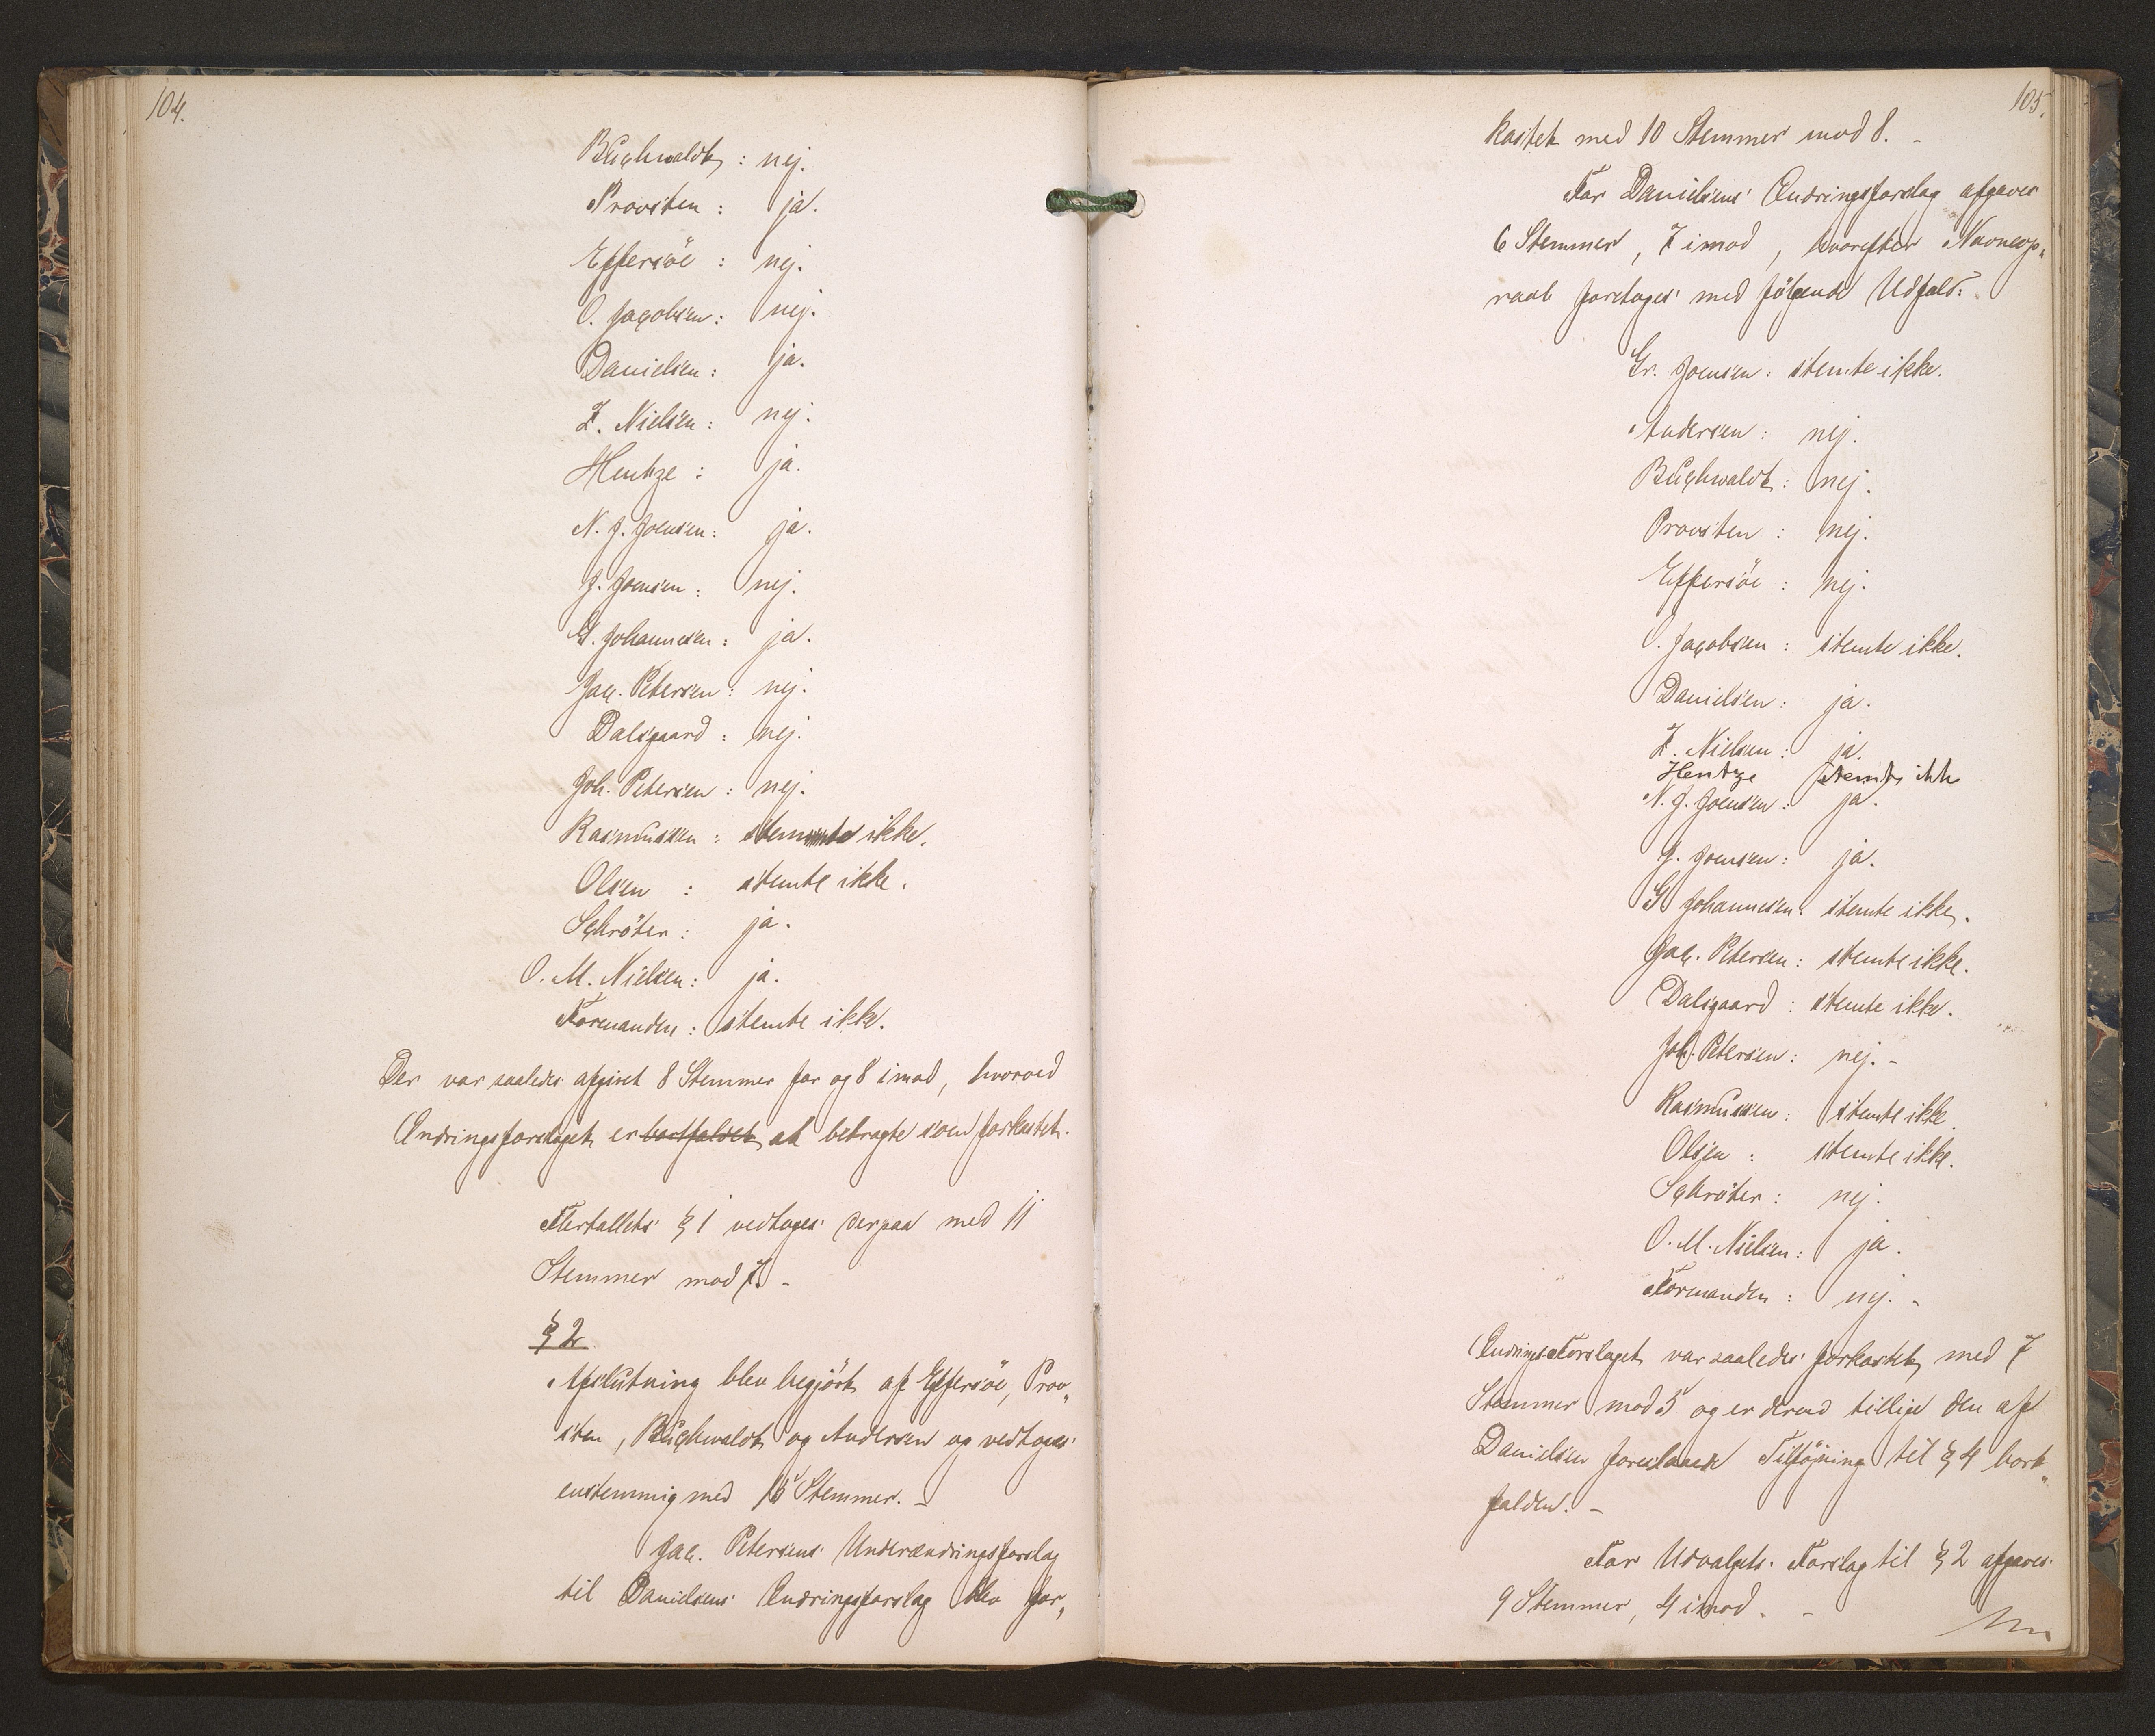 104.
Buchwaldt : nej.
Provsten : ja.
Effersöe : nej.
O. Jacobsen : nej.
Danielsen : ja.
Z. Nielsen : nej.
Hentze : ja.
N. J. Joensen : ja.
J. Joensen : nej.
G. Johannesen : ja.
Jac. Petersen : nej.
Dalsgaard : nej.
Joh. Petersen : nej.
Rasmussen : stemte ikke.
Olsen : stemte ikke.
Schröter : ja.
O. M. Nielsen : ja.
Formanden : stemte ikke.
Der var saaledes afgivet 8 Stemmer for og 8 imod, hvorved
Ændringsforslaget er bortfaldet at betragte som forkastet.
Flertallets § 1 vedtoges derpaa med 11
Stemmer mod 7. -
§ 2
Afslutning blev begjört af Effersöe, Prov„
sten, Buchwaldt og Andersen og vedtoges
enstemmig med 15 Stemmer. -
Jac. Petersens Underændringsforslag
til Danielsens Ændringsforslag blev for„
105.
kastet med 10 Stemmer mod 8. -
For Danielsens Ændringsforslag afgaves
6 Stemmer, 7 imod, hvorefter Navneop„
raab foretoges med följende Udfald:
Gr. Joensen : stemte ikke.
Andersen : nej.
Buchwaldt : nej.
Provsten : nej.
Effersöe : nej.
O. Jacobsen : stemte ikke.
Danielsen : ja.
Z. Nielsen : ja.
Hentze stemte ikke
N. J. Joensen : ja.
J. Joensen : ja.
G Johannesen : stemte ikke.
Jac. Petersen : stemte ikke.
Dalsgaard : stemte ikke.
Joh. Petersen : nej. -
Rasmussen : stemte ikke.
Olsen : stemte ikke.
Schröter : nej.
O. M. Nielsen : ja.
Formanden : nej. -
ÆndringsForslaget var saaledes forkastet med 7
Stemmer mod 5 og er derved tillige den af
Danielsen foreslaaede Tilföjning til § 4 bort„
falden. -
For Udvalgets Forslag til § 2 afgaves
9 Stemmer, 4 imod. -